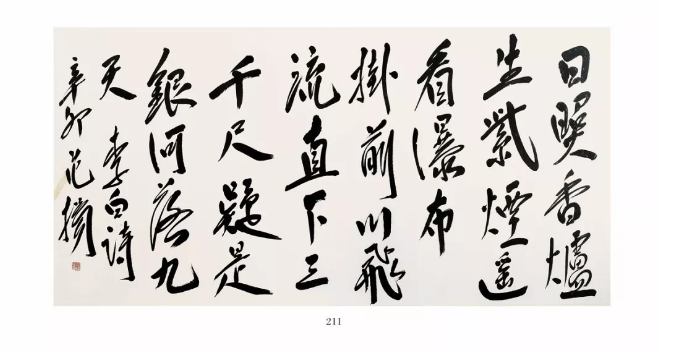 日照香爐
生紫煙遥
看瀑布
掛前川飛
流直下三
千尺疑是
銀河落九
天 李白詩
辛卯 范
211